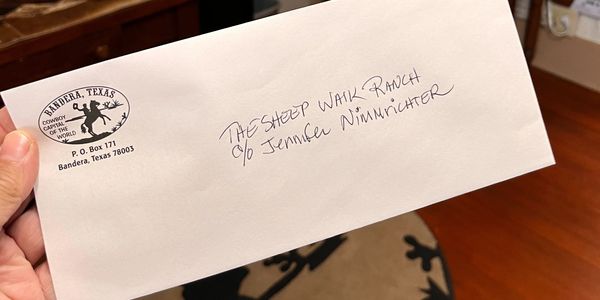 BANDERA, TEXAS
COWBOY
CAPITAL
OF THE
WORLD
P. O. Box 171
Bandera, Texas 78003
THE SHEEP WALK RANCH
c/o Jennifer Nimmrichter